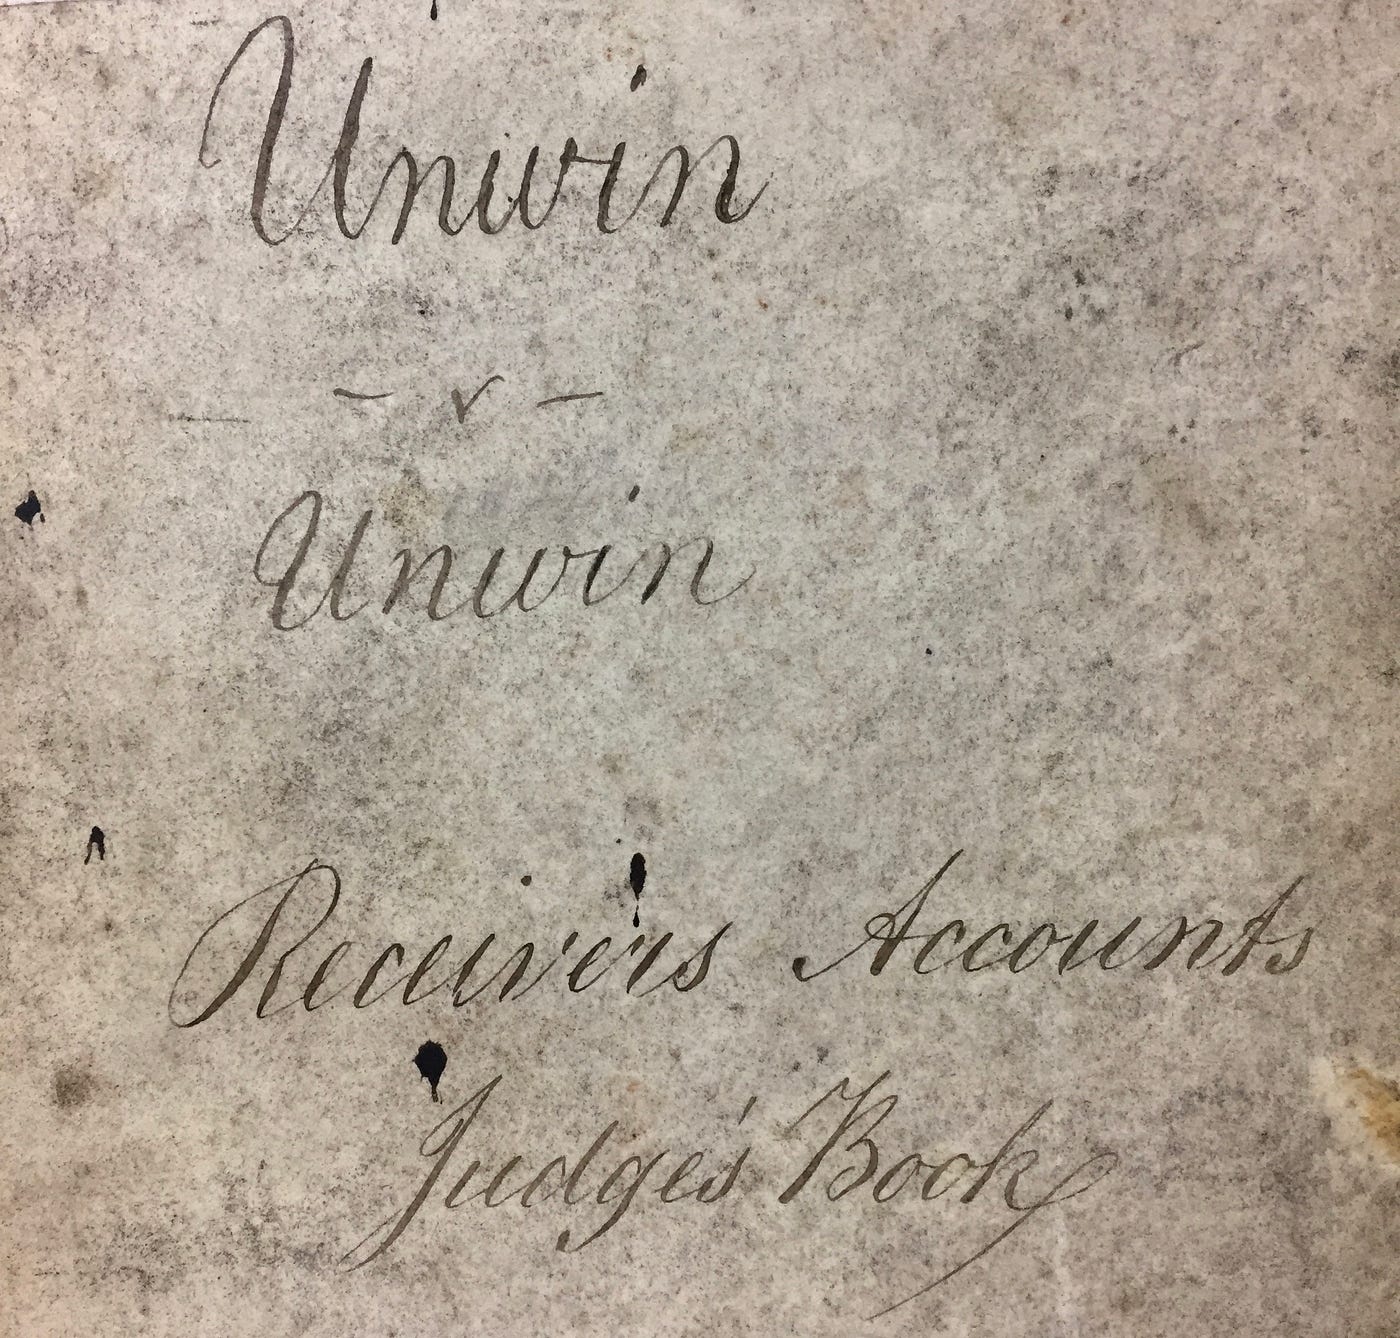 Unwin
- v -
Unwin
Receivers Accounts
Judge's Book